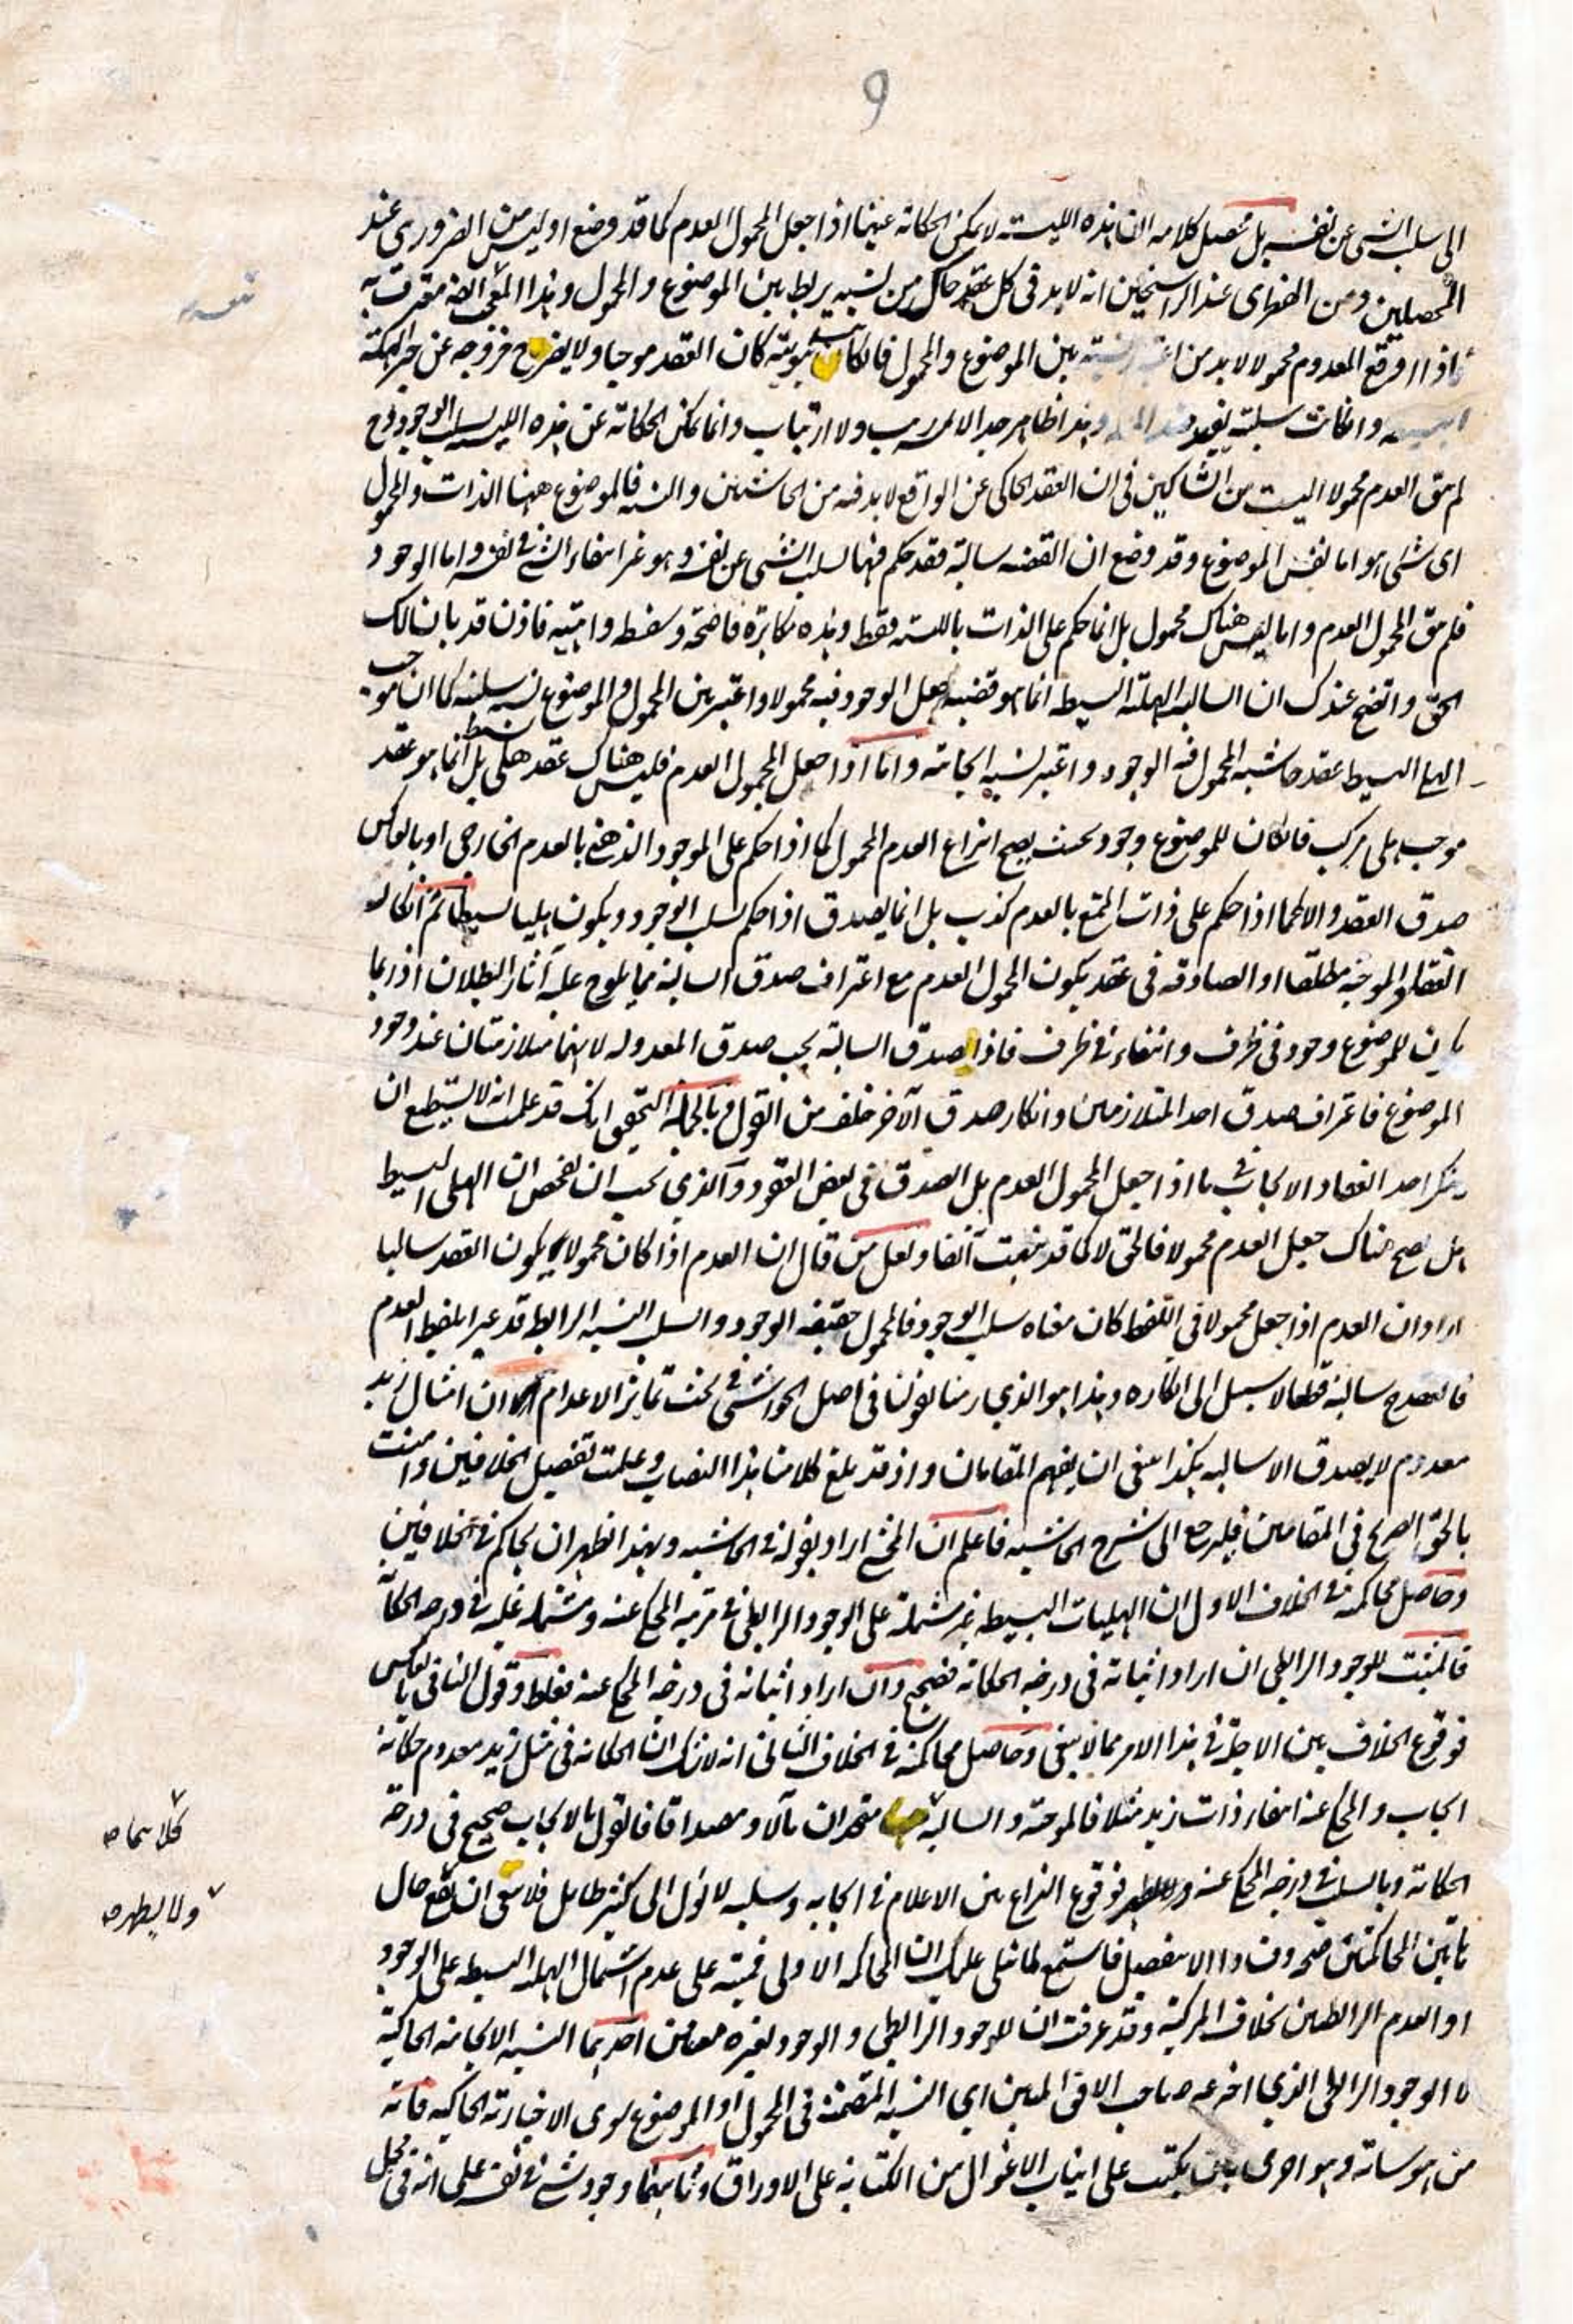 9
الى سلب الشئ عن نفسه بل محصل كلامه ان هذه الليسية لا يمكن الحكاية عنها اذا جعل المحمول العدم كما قد وضع اوليس من الضرورى عند
المحصلين ومن الفطرى عند الراسخين انه لا بد فى كل عقد حاك من نسبة يربط بين الموضوع والمحمول وهذا المعنى ايضا معترف به
فاذا وقع المعدوم محمولا لا بد من نسبة بين الموضوع والمحمول فان كانت ثبوتية كان العقد موجبا ولا يضر خروجه عن الهلية
البسيطة وان كانت سلبية وهذا ظاهر جدا لا ريب ولا ارتياب وانما يمكن الحكاية عن هذه الليسية بسلب الوجود وح
لم يبق العدم محمولا اليست من الشاكين فى ان العقد الحاكى عن الواقع لا بد فيه من الحاشيتين والنسبة فالموضوع ههنا الذات والمحمول
اى شئ هو اما نفس الموضوع وقد وضع ان القضية سالبة فقد حكم فيها بسلب الشئ عن نفسه وهو غير انتفاء الشئ فى نفسه واما الوجود
فلم يبق المحمول العدم واما ليس هناك محمول بل انما حكم على الذات بالليسية فقط وهذه مكابرة فاضحة وسفسطة واهية فاذن قد بان لك
الحق واتضح عندك ان السالبة الهلية البسيطة انما هو قضية جعل الوجود فيه محمولا واعتبر بين المحمول والموضوع نسبة سلبية كما ان موجب
الهلى البسيط عقد حاشية المحمول فيه الوجود واعتبر نسبة ايجابية واما اذا جعل المحمول العدم فليس هناك عقد هلى بسيط بل انما هو عقد
موجب هلى مركب فان كان للموضوع وجود بحيث يصح انتزاع العدم المحمول كما اذا حكم على الموجود الذهنى بالعدم الخارجى او بالعكس
صدق العقد والا كما اذا حكم على ذات الممتنع بالعدم كذب بل انما يصدق اذا حكم بسلب الوجود ويكون هليا بسيطا ثم انكار
انعقاد الموجبة مطلقا او الصادقة فى عقد يكون المحمول العدم مع اعتراف صدق السالبة مما يلوح عليه آثار البطلان اذ ربما
يكون للموضوع وجود فى ظرف وانتفاء فى ظرف فاذا صدق السالبة يجب صدق المعدولة لانهما متلازمتان عند وجود
الموضوع فاعتراف صدق احد المتلازمين وانكار صدق الآخر خلف من القول وبالجملة التحقيق انك قد علمت انه لا يستطيع ان
ينكر احد انعقاد الايجاب فى ما اذا جعل المحمول العدم بل الصدق فى بعض العقود والذى يجب ان يفحص ان الهلى البسيط
هل يصح هناك جعل العدم محمولا فالحق لا كما قد نبهت آنفا ولعل من قال ان العدم اذا كان محمولا يكون العقد سالبا
اراد ان العدم اذا جعل محمولا فى اللفظ كان معناه سلب الوجود فالمحمول حقيقة الوجود والسلب النسبة الرابطة قد عبر بلفظ العدم
فالعقد ح سالبة قطعا لا سبيل الى انكاره وهذا هو الذى رمنا بقولنا فى اصل الحواشى فى بحث تمايز الاعدام ان امثال زيد
معدوم لا يصدق الا سالبة هكذا ينبغى ان يفهم المقامان واذ قد بلغ كلامنا هذا النصاب وعلمت تفصيل الخلافين وامنت
بالحق الصريح فى المقامين فليرجع الى شرح الحاشية فاعلم ان المحشى اراد بقوله فى الحاشية وبهذا ظهر ان يحاكم فى الخلافين
وحاصل محاكمته فى الخلاف الاول ان الهليات البسيطة غير مشتملة على الوجود الرابطى فى مرتبة المحكى عنه ومشتملة عليه فى درجة الحكاية
فالمثبت للوجود الرابطى ان اراد اثباته فى درجة الحكاية فصحيح وان اراد اثباته فى درجة المحكى عنه فغلط وقول النافى بالعكس
فوقوع الخلاف بين الاجلة فى هذا الامر مما لا ينبغى وحاصل محاكمته فى الخلاف الثانى انه لا شك ان الحكاية فى مثل زيد معدوم حكاية
ايجاب والمحكى عنه انتفاء ذات زيد مثلا فالموجبة والسالبة متحدان مآلا ومصداقا فالقول بالايجاب صحيح فى درجة
الحكاية وبالسلب فى درجة المحكى عنه فوقوع النزاع بين الاعلام فى ايجابه وسلبه لا يؤل الى كثير طائل فلا ينبغى ان يقع حال
هاتين المحاكمتين صحة وفسادا الا بتفصيل فاستمع لما نتلى عليك ان المحاكمة الاولى فمبتنية على عدم اشتمال الهلية البسيطة على الوجود
او العدم الرابطيين بخلاف المركبة وقد عرفت ان للوجود الرابطى والوجود لغيره معانى احدها النسبة الايجابية الحاكية
لا الوجود الرابطى الذى اخترعه صاحب الافق المبين اى النسبة المتضمنة فى المحمول او الموضوع سوى الاخبارية الحاكية فانه
من هوساته وهو احرى بان يكتب على انياب الاغوال من الكتابة على الاوراق وثانيها وجود شئ فى نفسه على انه فى محل